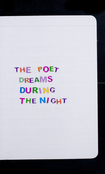 THE POET
DREAMS
DURING
THE NIGHT